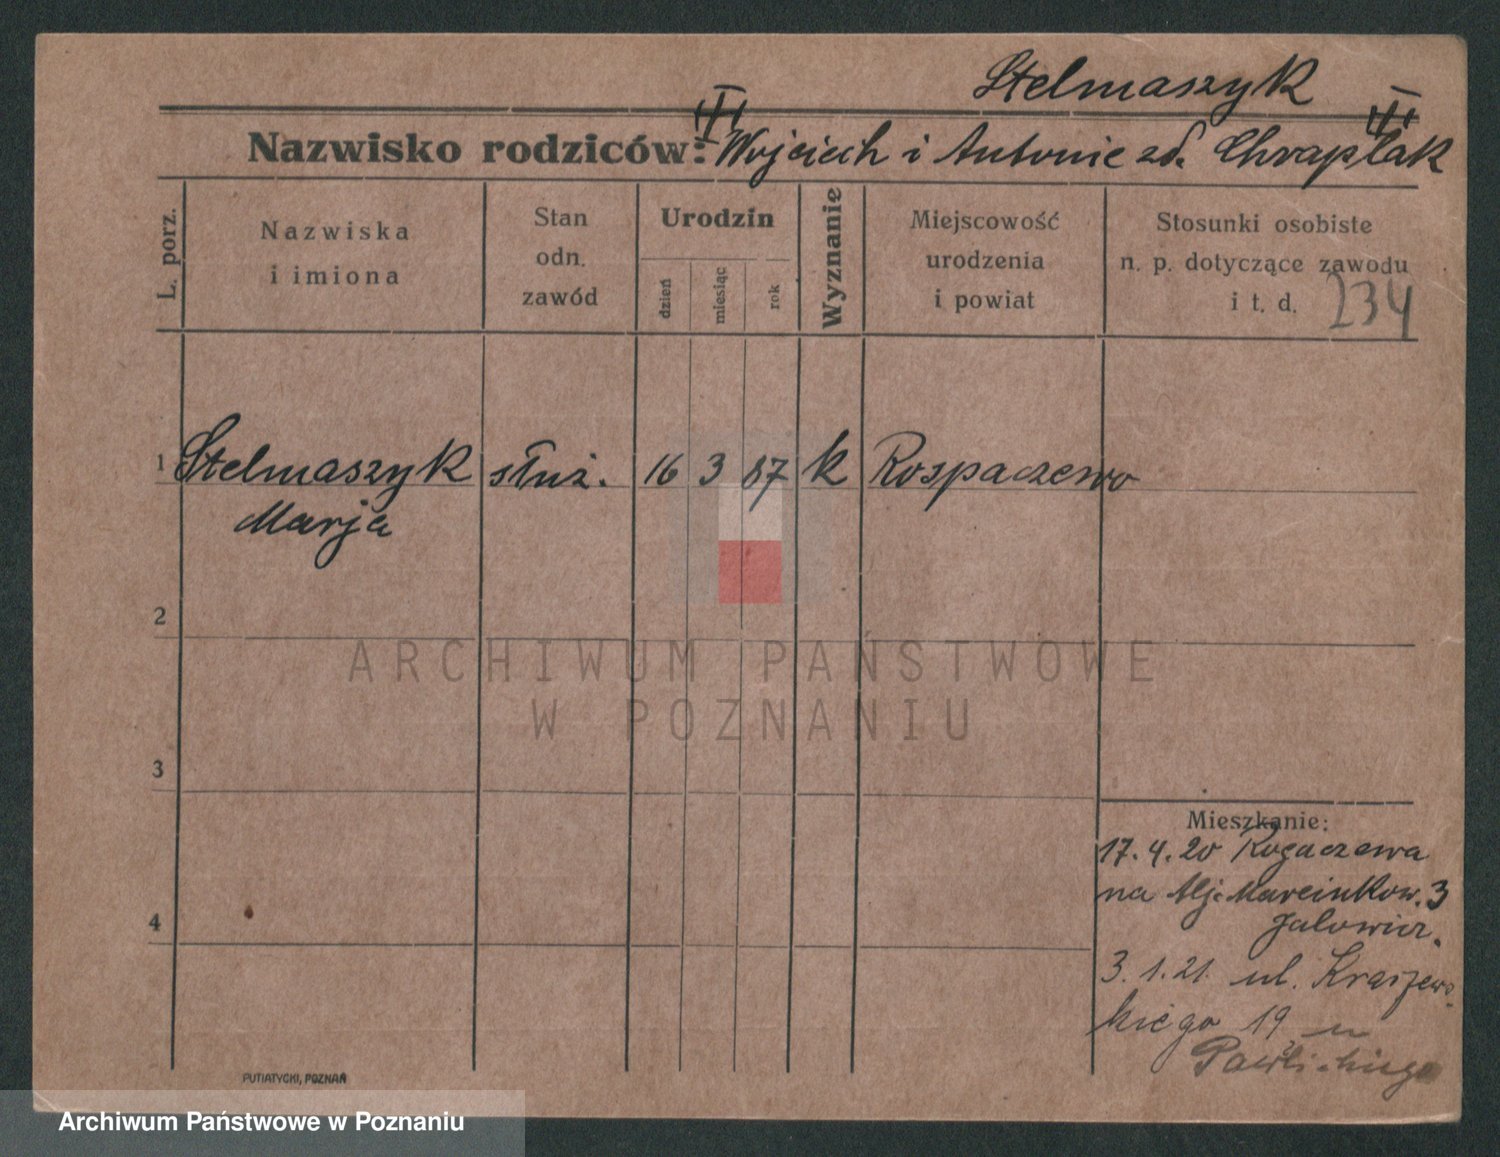 Stelmaszyk
Nazwisko rodziców: Wojciech i Antonie zd. Chraplak
L. porz.
Nazwiska
i imiona
Stan
odn.
zawód
Urodzin
dzień
miesiąc
rok
Wyznanie
Miejscowość
urodzenia
i powiat
Stosunki osobiste
n. p. dotyczące zawodu
i t. d. 234
1 Stelmaszyk służ. 16 3 87 k Rospaczewo
Marja
2
ARCHIWUM PAŃSTWOWE
W POZNANIU
3
Mieszkanie:
17.4.20 Rogaczewa
na Alj. Marcinkow. 3
4
3.1.21. ul. Kraszews-
kiego 19 u
PUTIATYCKI, POZNAŃ
Archiwum Państwowe w Poznaniu